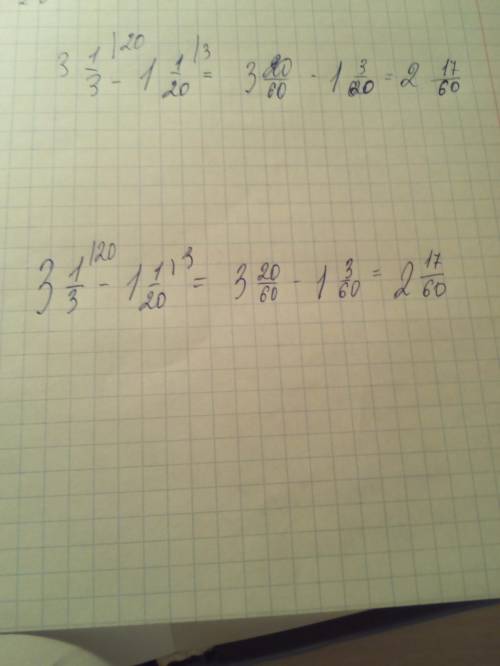 3 1/3 |20 - 1 1/20 |3 = 3 20/60 - 1 3/60 = 2 17/60
3 1/3 |20 - 1 1/20 |3 = 3 20/60 - 1 3/60 = 2 17/60